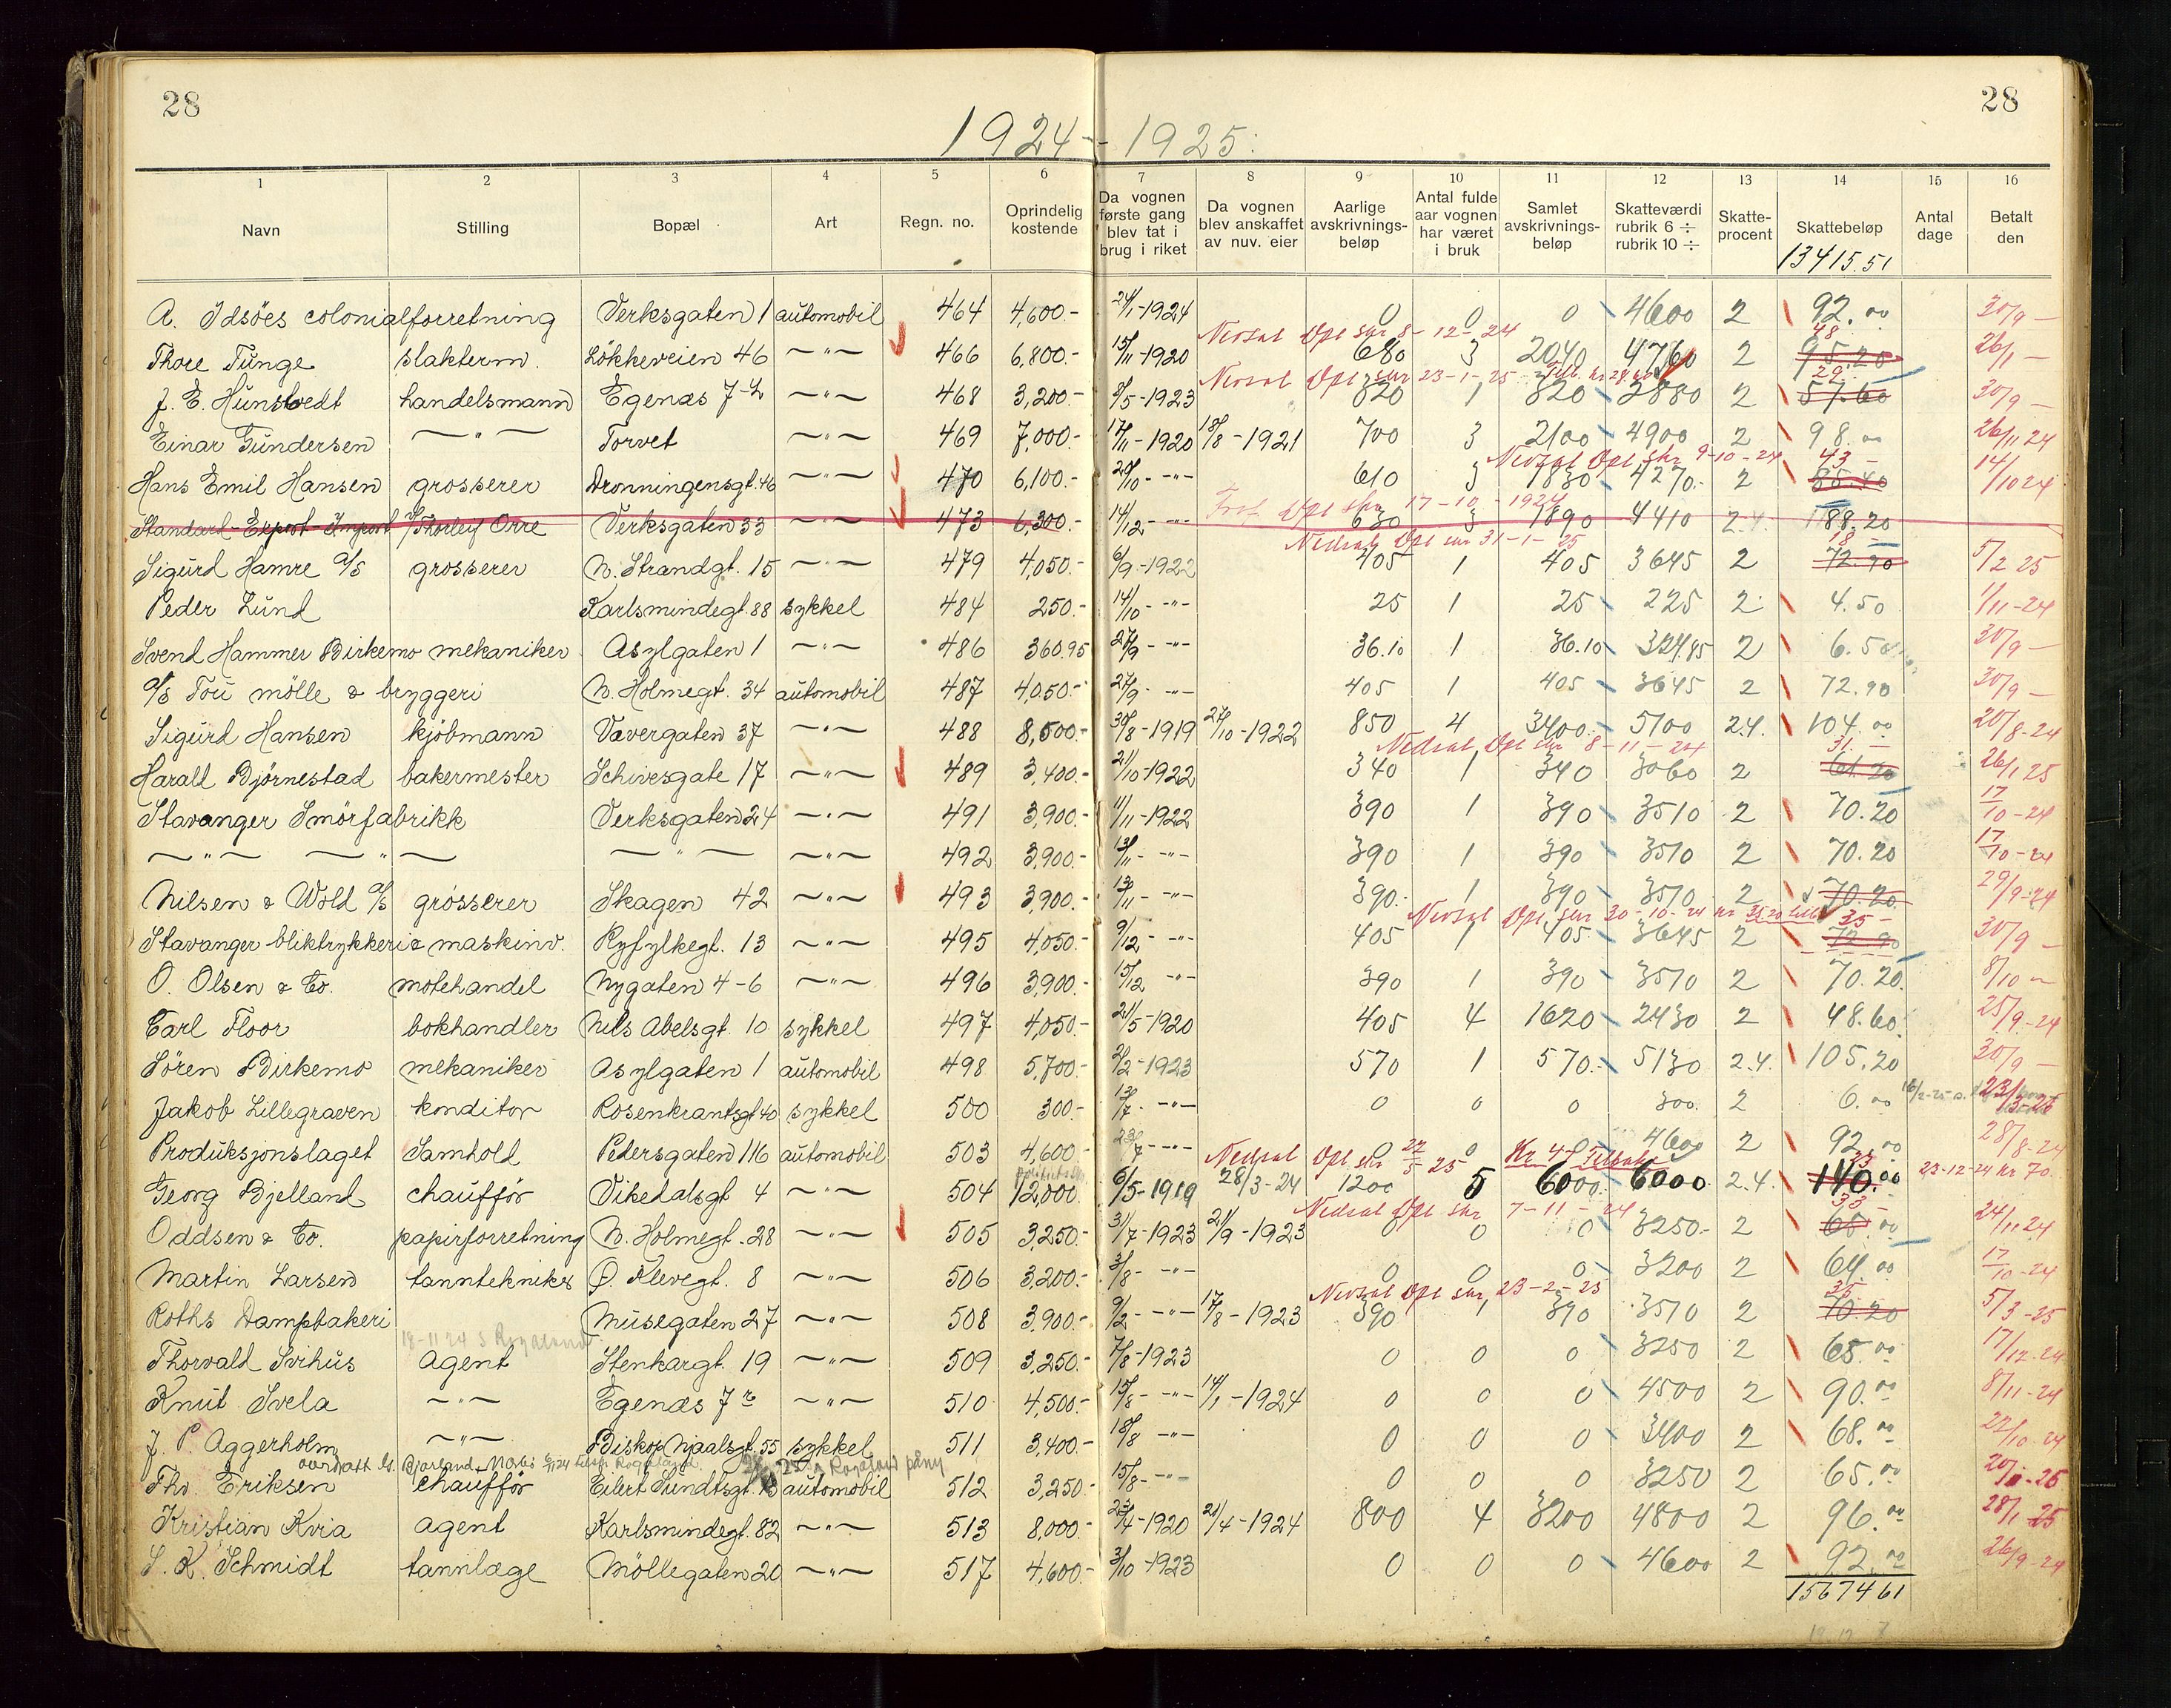 28
28
1924 - 1925:
1 2 3 4 5 6 7 8 9 10 11 12 13 14 15 16
Navn Stilling Bopæl Art Regn. no. Oprindelig kostende Da vognen første gang blev tat i brug i riket Da vognen blev anskaffet av nuv. eier Aarlige avskrivnings-beløp Antal fulde aar vognen har været i bruk Samlet avskrivnings-beløp Skatteværdi rubrik 6 ÷ rubrik 10 ÷ Skatte-procent Skattebeløp Antal dage Betalt den
13415.51
A. Idsöes colonialforretning Verksgaten 1 automobil 464 4,600.- 24/1-1924 0 0 0 4600 2 92.00 30/9 -
Nedsat Dpt skr 8-12-24 48
Thore Tunge slakterm. Lökkeveien 46 -"- 466 6,800.- 15/11-1920 680 3 2040 4760 2 95.20 26/1 -
Nedsat Dpt skr 23-1-25 29
J. E. Hunstvedt handelsmann Egenæs 7-4 -"- 468 3,200.- 8/5-1923 320 1 320 2880 2 57.60 30/9 -
Einar Gundersen -"- Torvet -"- 469 7,000.- 17/11-1920 18/8-1921 700 3 2100 4900 2 98.00 26/11 24
Nedsat Dpt skr 9-10-24 43 -
Hans Emil Hansen grosserer Dronningensgt. 46 -"- 470 6,100.- 29/10- -"- 610 3 1830 4270.- 2 85.40 14/10 24
Dpt skr 17-10-1924
Standard-Export-Import v/ Thorleif Orre Verksgaten 33 -"- 473 6,300.- 14/12- -"- 630 3 1890 4410 2.4. 88.20
Nedsat Dpt skr 31-1-25 18
Sigurd Hamre A/S grosserer N. Strandgt. 15 -"- 479 4,050.- 6/9-1922 405 1 405 3645 2 72.90 5/2 25
Peder Lund Karlsmindegt. 88 sykkel 484 250.- 14/10- -"- 25 1 25 225 2 4.50 1/11-24
Svend Hammer Birkemo mekaniker Asylgaten 1 -"- 486 360.95 27/9- -"- 36.10 1 36.10 324,85 2 6.50 30/9 -
A/S Tou mölle & bryggeri N. Holmegt. 34 automobil 487 4,050.- 27/9- -"- 405 1 405 3645 2 72.90 30/9 -
Sigurd Hansen kjöbmann Vævergaten 37 -"- 488 8,500.- 30/8-1919 27/10-1922 850 4 3400 5100 2.4. 104.00 20/8-24
Nedsat Dpt skr 8-11-24 31. -
Harald Bjørnestad bakermester Schivesgate 17 -"- 489 3,400.- 21/10-1922 340 1 340 3060 2 61.20 26/1 25
Stavanger Smörfabrikk Verksgaten 24 -"- 491 3,900.- 11/11-1922 390 1 390 3510 2 70.20 17/10-24
-"- -"- -"- -"- 492 3,900.- 13/11- -"- 390 1 390 3510 2 70.20 17/10-24
Nilsen & Wold A/S grosserer Skagen 42 -"- 493 3,900.- 13/11- -"- 390.- 1 390 3510 2 70.20 29/9-24
Nedsat Dpt skr 30-10-24 kr 35.20 35 -
Stavanger bliktrykkeri & maskinv. Ryfylkegt. 13 -"- 495 4,050.- 9/12- -"- 405 1 405 3645 2 72.90 30/9 -
O. Olsen & Co. motehandel Nygaten 4-6 -"- 496 3,900.- 15/12 -"- 390 1 390 3510 2 70.20. 8/10 -
Carl Floor bokhandler Nils Abelsgt. 10 sykkel 497 4,050.- 21/5-1920 405 4 1620 2430 2 48.60 25/9-24
Sören Birkemo mekaniker Asylgaten 1 automobil 498 5,700.- 2/2-1923 570 1 570.- 5130 2.4. 105.20 30/9 -
Jakob Lillegraven konditor Rosenkrantsgt 40 sykkel 500 300.- 13/7- -"- 0 0 0 300. 2 6.00 23/3-25
Produksjonslaget Samhold Pedersgaten 116 automobil 503 4,600.- 23/7- -"- 0 0 0 4600 2 92.00 28/8-24
Nedsat Dpt skr 22/5-25 Kr 47 Tilbake 23
Georg Bjelland chaufför Vikedalsgt 4 -"- 504 12,000. 6/5-1919 28/3-24 1200 5 6000. 6000. 2.4. 140.00 23-12-24 kr 70.
Nedsat Dpt skr 7-11-24 33 -
Oddsen & Co. papirforretning N. Holmegt. 28 -"- 505 3,250.- 31/7-1923 21/9-1923 0 0 0 3250.- 2 65.00 24/11 24
Martin Larsen tanntekniker Ø. Klevegt. 8 -"- 506 3,200.- 3/8- -"- 0 0 0 3200 2 64.00 17/10-24
Nedsat Dpt skr 23-2-25 35
Roths Dampbakeri Musegaten 27 -"- 508 3,900.- 9/2- -"- 17/8-1923 390 1 390 3510 2 70.20 5/3-25
18-11 24 S Rogaland
Thorvald Svihus Agent Stenkargt. 19 -"- 509 3,250.- 7/8-1923 0 0 0 3250 2 65.00 17/12-24
Knut Svela -"- Egenæs 7 -"- 510 4,500.- 15/8- -"- 14/1-1924 0 0 0 4500 2 90.00 8/11-24
J. P. Aggerholm -"- Biskop Njaalsgt. 55 sykkel 511 3,400.- 18/8 -"- 0 0 0 3400 2 68.00 22/10-24
Thv. Eriksen chaufför Eilert Sundtsgt. automobil 512 3,250.- 15/8- -"- 0 0 0 3250 2 65.00
Kristian Kvia agent Karlsmindegt. 82 -"- 513 8,000.- 23/4-1920 21/4-1924 800 4 3200 4800 2 96.00 28/1 25
S. K. Schmidt tannlæge Möllegaten 20 -"- 517 4,600.- 3/10-1923 0 0 0 4600 2 92.00 26/9-24
1567461